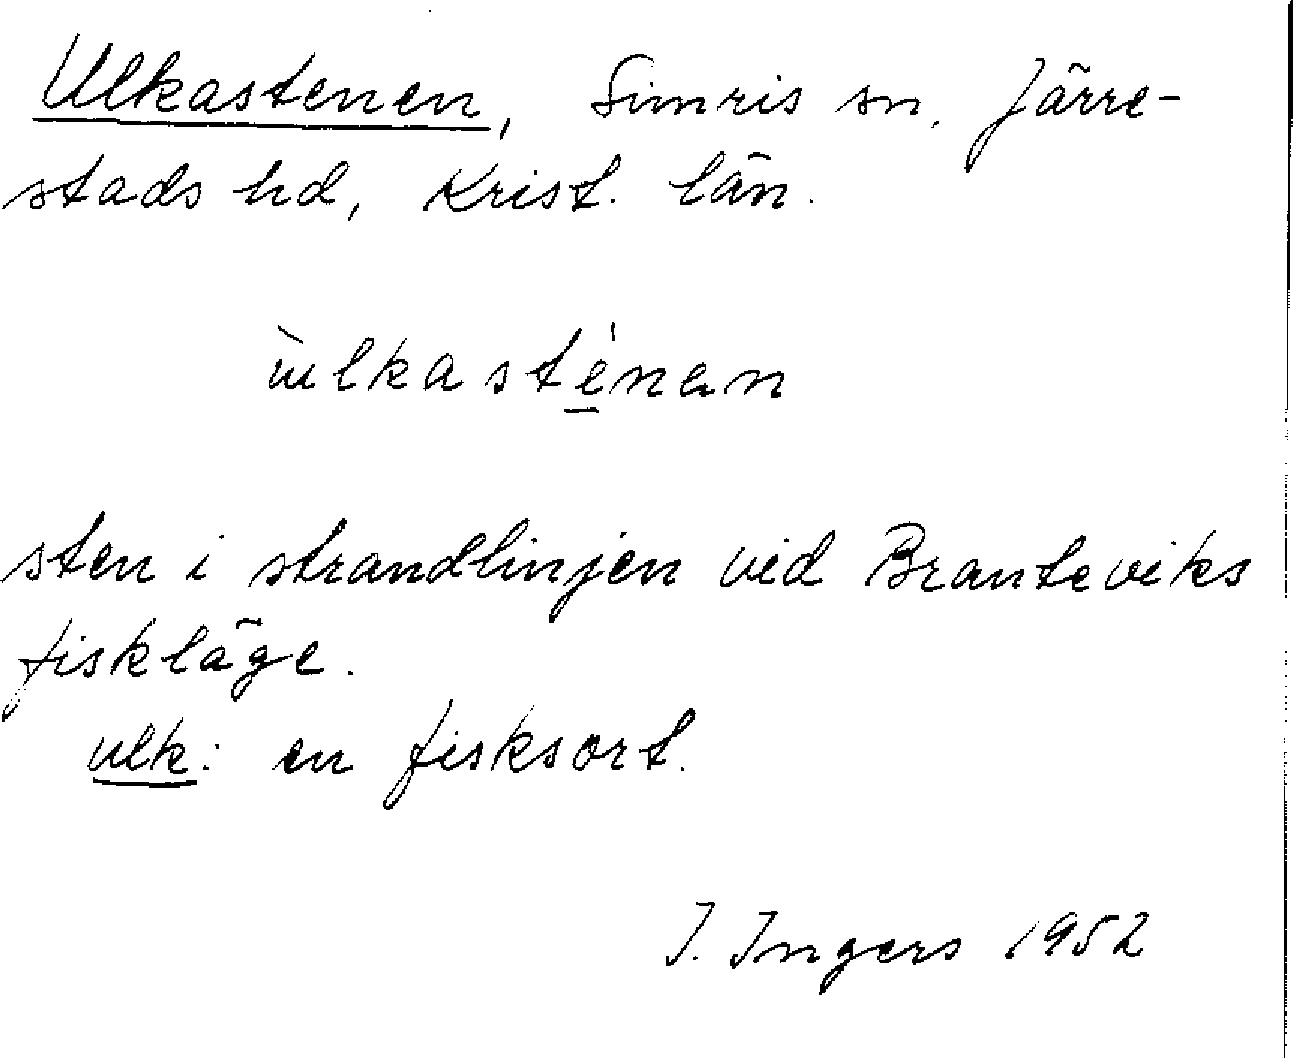 Ulkastenen, Simris sn. Järre-
stads hd, Krist. län.
ùlkasté̱nan
sten i strandlinjen vid Branteviks
fiskläge.
ulk: en fisksort.
I. Ingers 1952